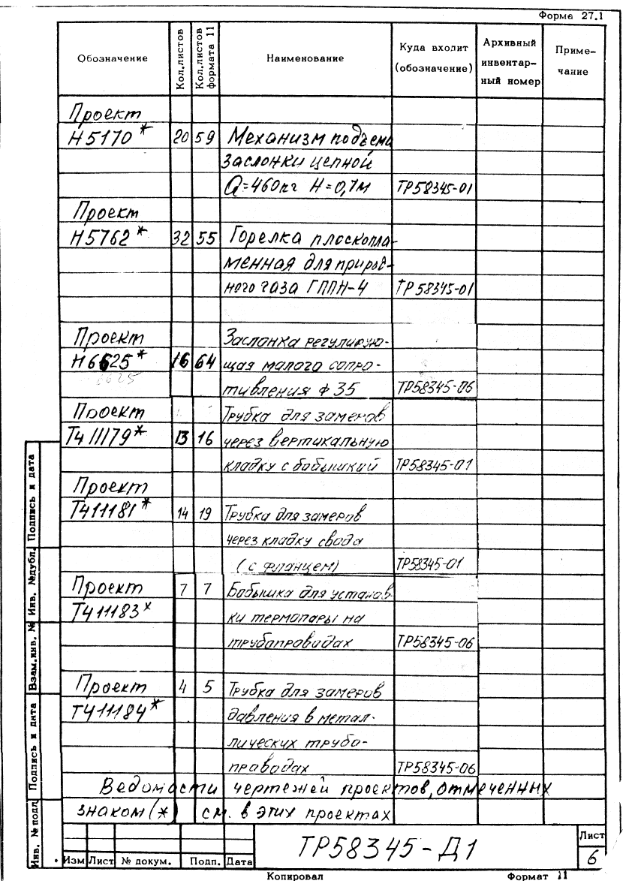 Форма 27.1
Обозначение Кол.листов Кол.листов формата 11 Наименование Куда входит (обозначение) Архивный инвентарный номер Примечание
Проект
Н5170* 20 59 Механизм подъема
заслонки цепной
Q=460кг Н=0,7м ТР58345-01
Проект
Н5762* 32 55 Горелка плоскопла-
менная для природ-
ного газа ГППН-4 ТР58345-01
Проект Заслонка регулирую-
Н6625* 16 64 щая малого сопро-
тивления ф 35 ТР58345-06
Проект Трубка для замеров
Т411179* 13 16 через вертикальную
кладку с бобышкий ТР58345-01
Проект
Т411181* 14 19 Трубка для замеров
через кладку свода
(с фланцем) ТР58345-01
Проект 7 7 Бобышка для установ
Т411183* ки термопары на
трубаправодах ТР58345-06
Проект 4 5 Трубка для замеров
Т411184* давления в метал-
лических труба-
праводах ТР58345-06
Ведомасти чертежей проектов, отмеченных
знаком (*) см. в этих проектах
Инв. № подл Подпись и дата Взам.инв. № Инв. №дубл. Подпись и дата
ТР58345-Д1
Лист
6
Изм Лист № докум. Подп. Дата
Копировал Формат 11